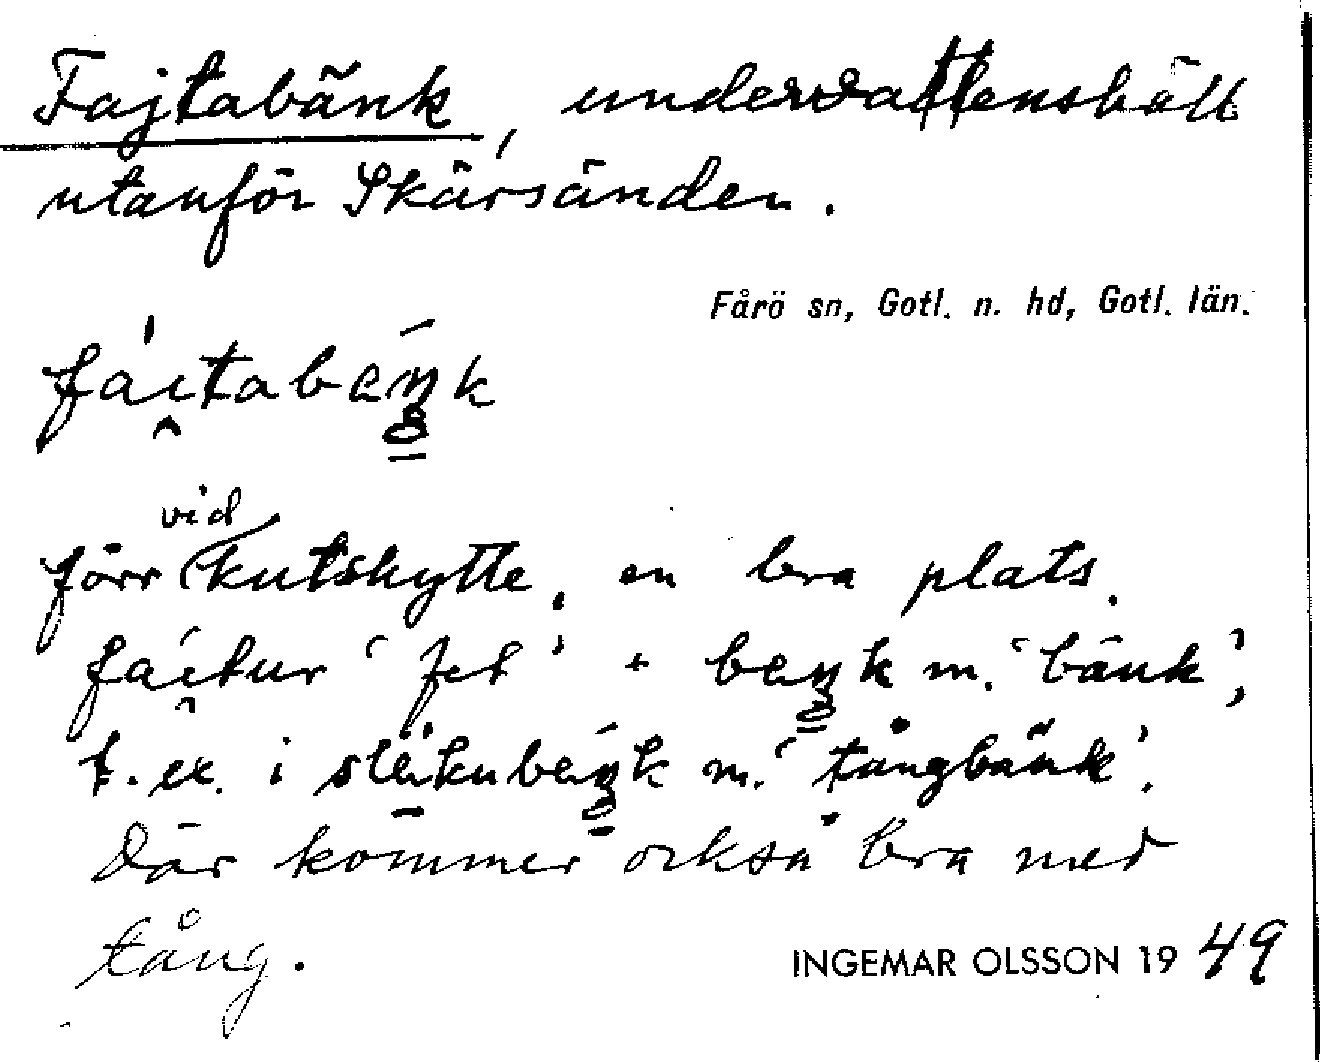 Fajtabänk, undervattenshäll
utanför Skärsänden.
Fårö sn, Gotl. n. hd, Gotl. län.
fái̯tabéŋk
vid
förr kutskytte, en bra plats.
fái̯tur 'fet' + beŋk m. 'bänk',
t.ex. i slǟkubéŋk m. 'tångbänk'.
Där kommer också bra med
tång.
INGEMAR OLSSON 1949